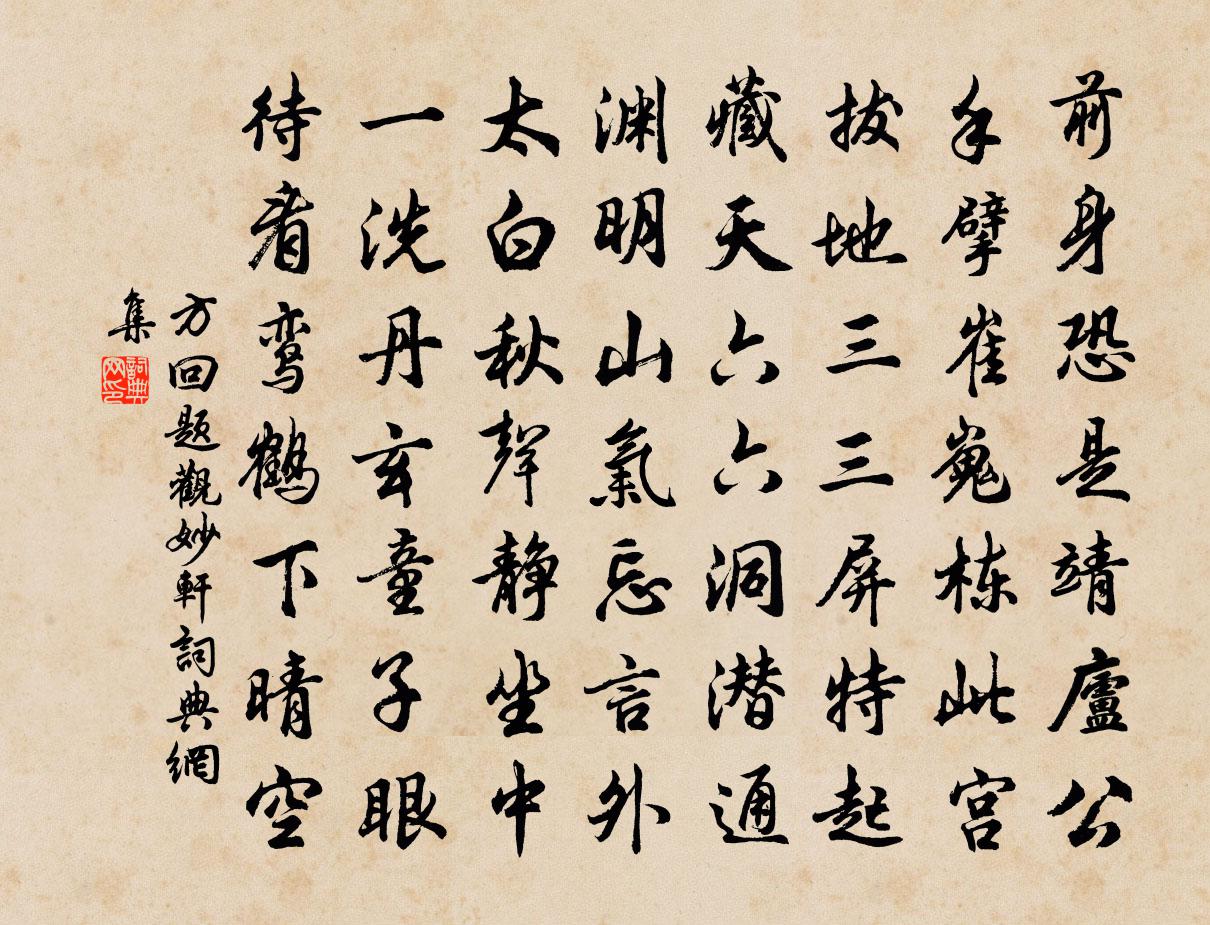 前身恐是靖廬公
手擘崔嵬栋此宫
拔地三三屏特起
藏天六六洞潜通
渊明山氣忘言外
太白秋聲静坐中
一洗丹玄童子眼
待看鸾鶴下晴空
方回题觀妙軒詞典網
集
詞典网印